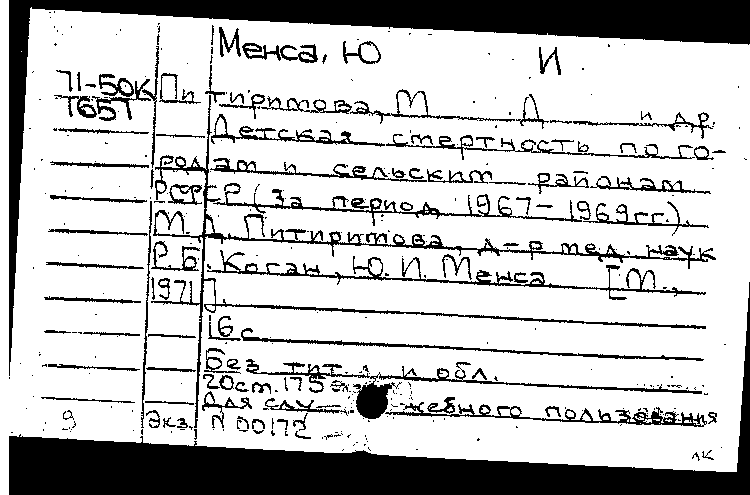 Менса, Ю И
71-50к
1657
Питиримова, М Д и др.
Детская смертность по го-
родам и сельским районам
РСФСР (За период 1967-1969гг.).
М. Д. Питиримова, д-р мед. наук
Р.Б. Коган, Ю. И. Менса. [М.,
1971].
16с
Без тит. л. и обл.
20см. 175 экз
Для слу- жебного пользования
9 Экз. N 00172
лк